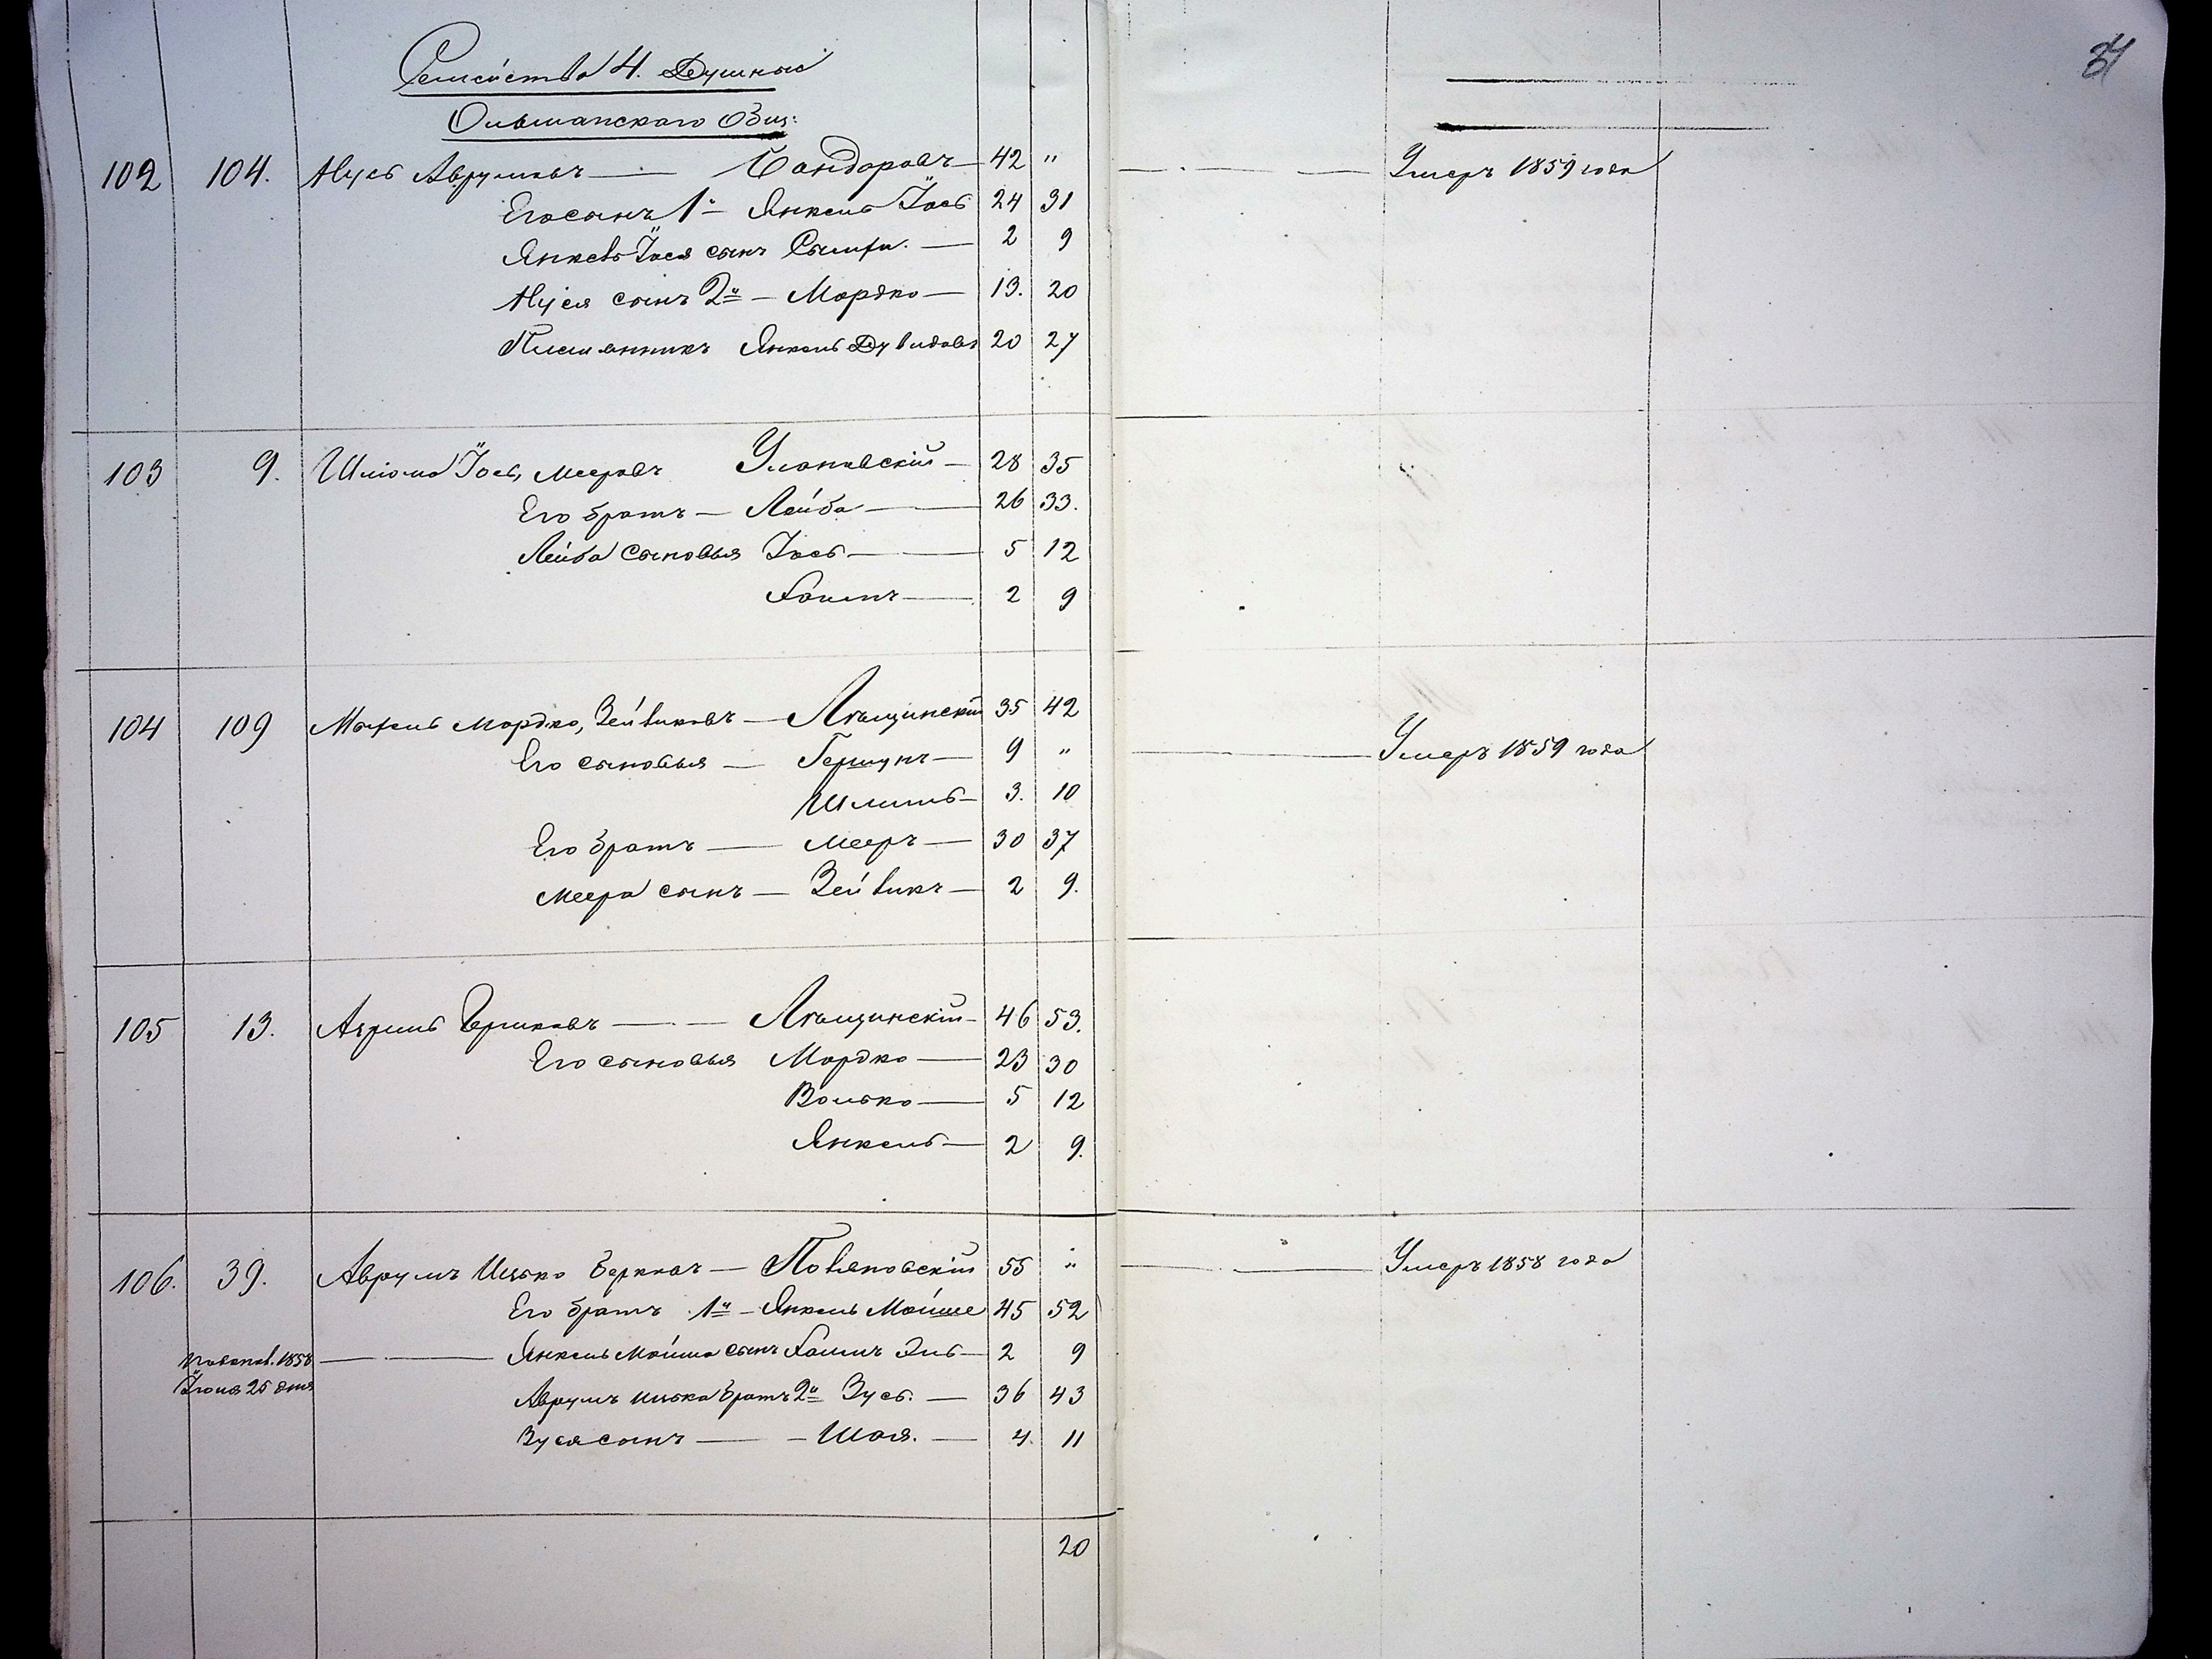 34
Семейства 4. Душные
Ольшанскаго Общ:
102 104. Нусь Аврумовъ — Бондоровъ — 42 " — Умеръ 1859 года
Его сынъ 1й — Янкель Іось 24 31
Янкель Іося сынъ — 2 9
Нуся сынъ 2й — Мордко — 13. 20
Племянникъ Янкель Дувидовъ 20 27
103 9. Шліома Іось, Мееровъ Улановскій — 28 35
Его братъ — Лейба — 26 33.
Лейба сыновья Іось — 5 12
Хаимъ — 2 9
104 109 Мордко, Зейвиковъ — Лѣщинскій 35 42
Его сыновья — Гершунъ — 9 " — Умеръ 1859 года
Шмиль — 3. 10
Его братъ — Мееръ — 30 37
Меера сынъ — Зейвикъ — 2 9.
105 13. Берковъ — Лѣщинскій — 46 53.
Его сыновья Мордко — 23 30
Волько — 5 12
Янкель — 2 9.
106. 39. Аврумъ Ицько Берковъ — 55 " — Умеръ 1858 года
Его братъ 1й — Янкель Мойше 45 52
1858 — Янкель Мойша сынъ Хаимъ Эль — 2 9
Іюня 25 дня
Аврумъ Ицька братъ 2й Зусь. — 36 43
Зуся сынъ — Шоя. — 4. 11
20